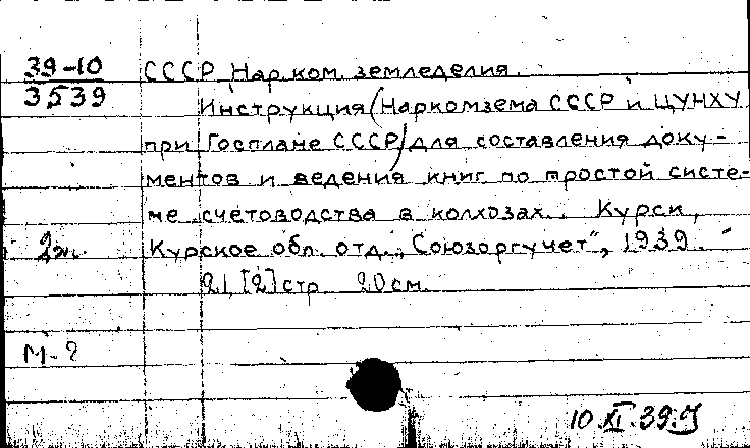 39-10
3539
СССР Нар.ком. земледелия.
Инструкция (Наркомзема СССР и ЦУНХУ
при Госплане СССР) для составления доку-
ментов и ведения книг по простой систе-
ме счетоводства в колхозах. Курск,
2эк.
Курское обл. отд. „Союзоргучет", 1939.
21, [2] стр. 20 см.
М-2
10.XI.39.